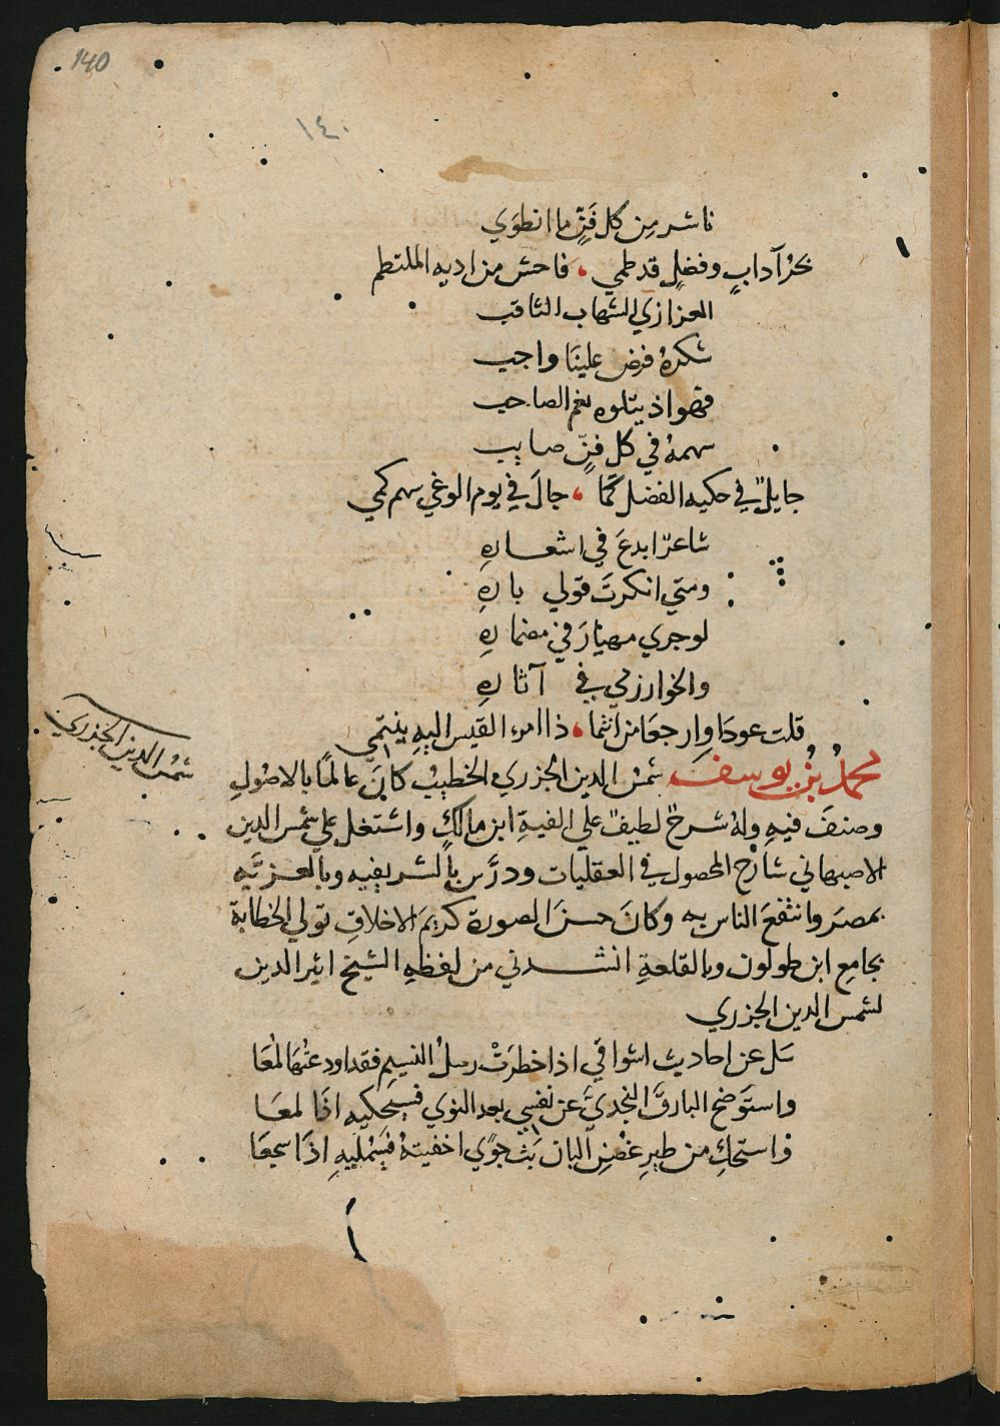 140
١٤٠
ناشر من كل فَنٍّ ما انطوَي
بحرُ آدابٍ وفضلٍ قد طمي ، فاخش من اديه الملتطم
العزازي الشهاب الثاقب
شكرهُ فرض علينَا واجب
فهو اذ يتلوه نعم الصاحب
سهمهُ في كل فنٍّ صايب
جايلٌ في حكيه الفضل كمَا ، جالَ في يوم الوغي سهم كمي
شاعرٌ ابدعَ في اشعاره
ومتي انكرتَ قولي باره
لو جري مهيارَ في مضماره
والخوارزمي في آثاره
قلت عودَا وارجعَا من انتما ، ذا امرء القيس اليهِ ينتمي
شمسُ الدين الجزري
محمدُ بنُ يوسف شمسُ الدين الجزري الخطيبُ كانَ عالمًا بالاصُولِ
وصنفَ فيهِ ولهُ شرحٌ لطيفٌ علي الفيةِ ابن مالكٍ واشتغل علي شمس الدين
الاصبهاني شارح المحصول في العقليات ودرَّس بالشريفيه وبالعزيَّه
بمصرَ وانتفعَ الناس به وكانَ حسنَ الصورة كريمَ الاخلاقِ تولي الخطابة
بجامِع ابن طولون وبالقلعةِ انشدني من لفظهِ الشيخ اثير الدين
لشمس الدين الجزري
سَل عن احاديث اشواقي اذا خطرَتْ رسلُ النسيمِ فقد اودعتُهَا لُمعَا
واستَوضح البارقَ النجديَّ عن نفسي بعد النوي فسيحكيهِ اذَا لمعَا
واستحكِ من طيرِ غصْنِ البان بَثَّ جوًي اخفيتهُ فسَيُمليهِ اذَا سجعَا